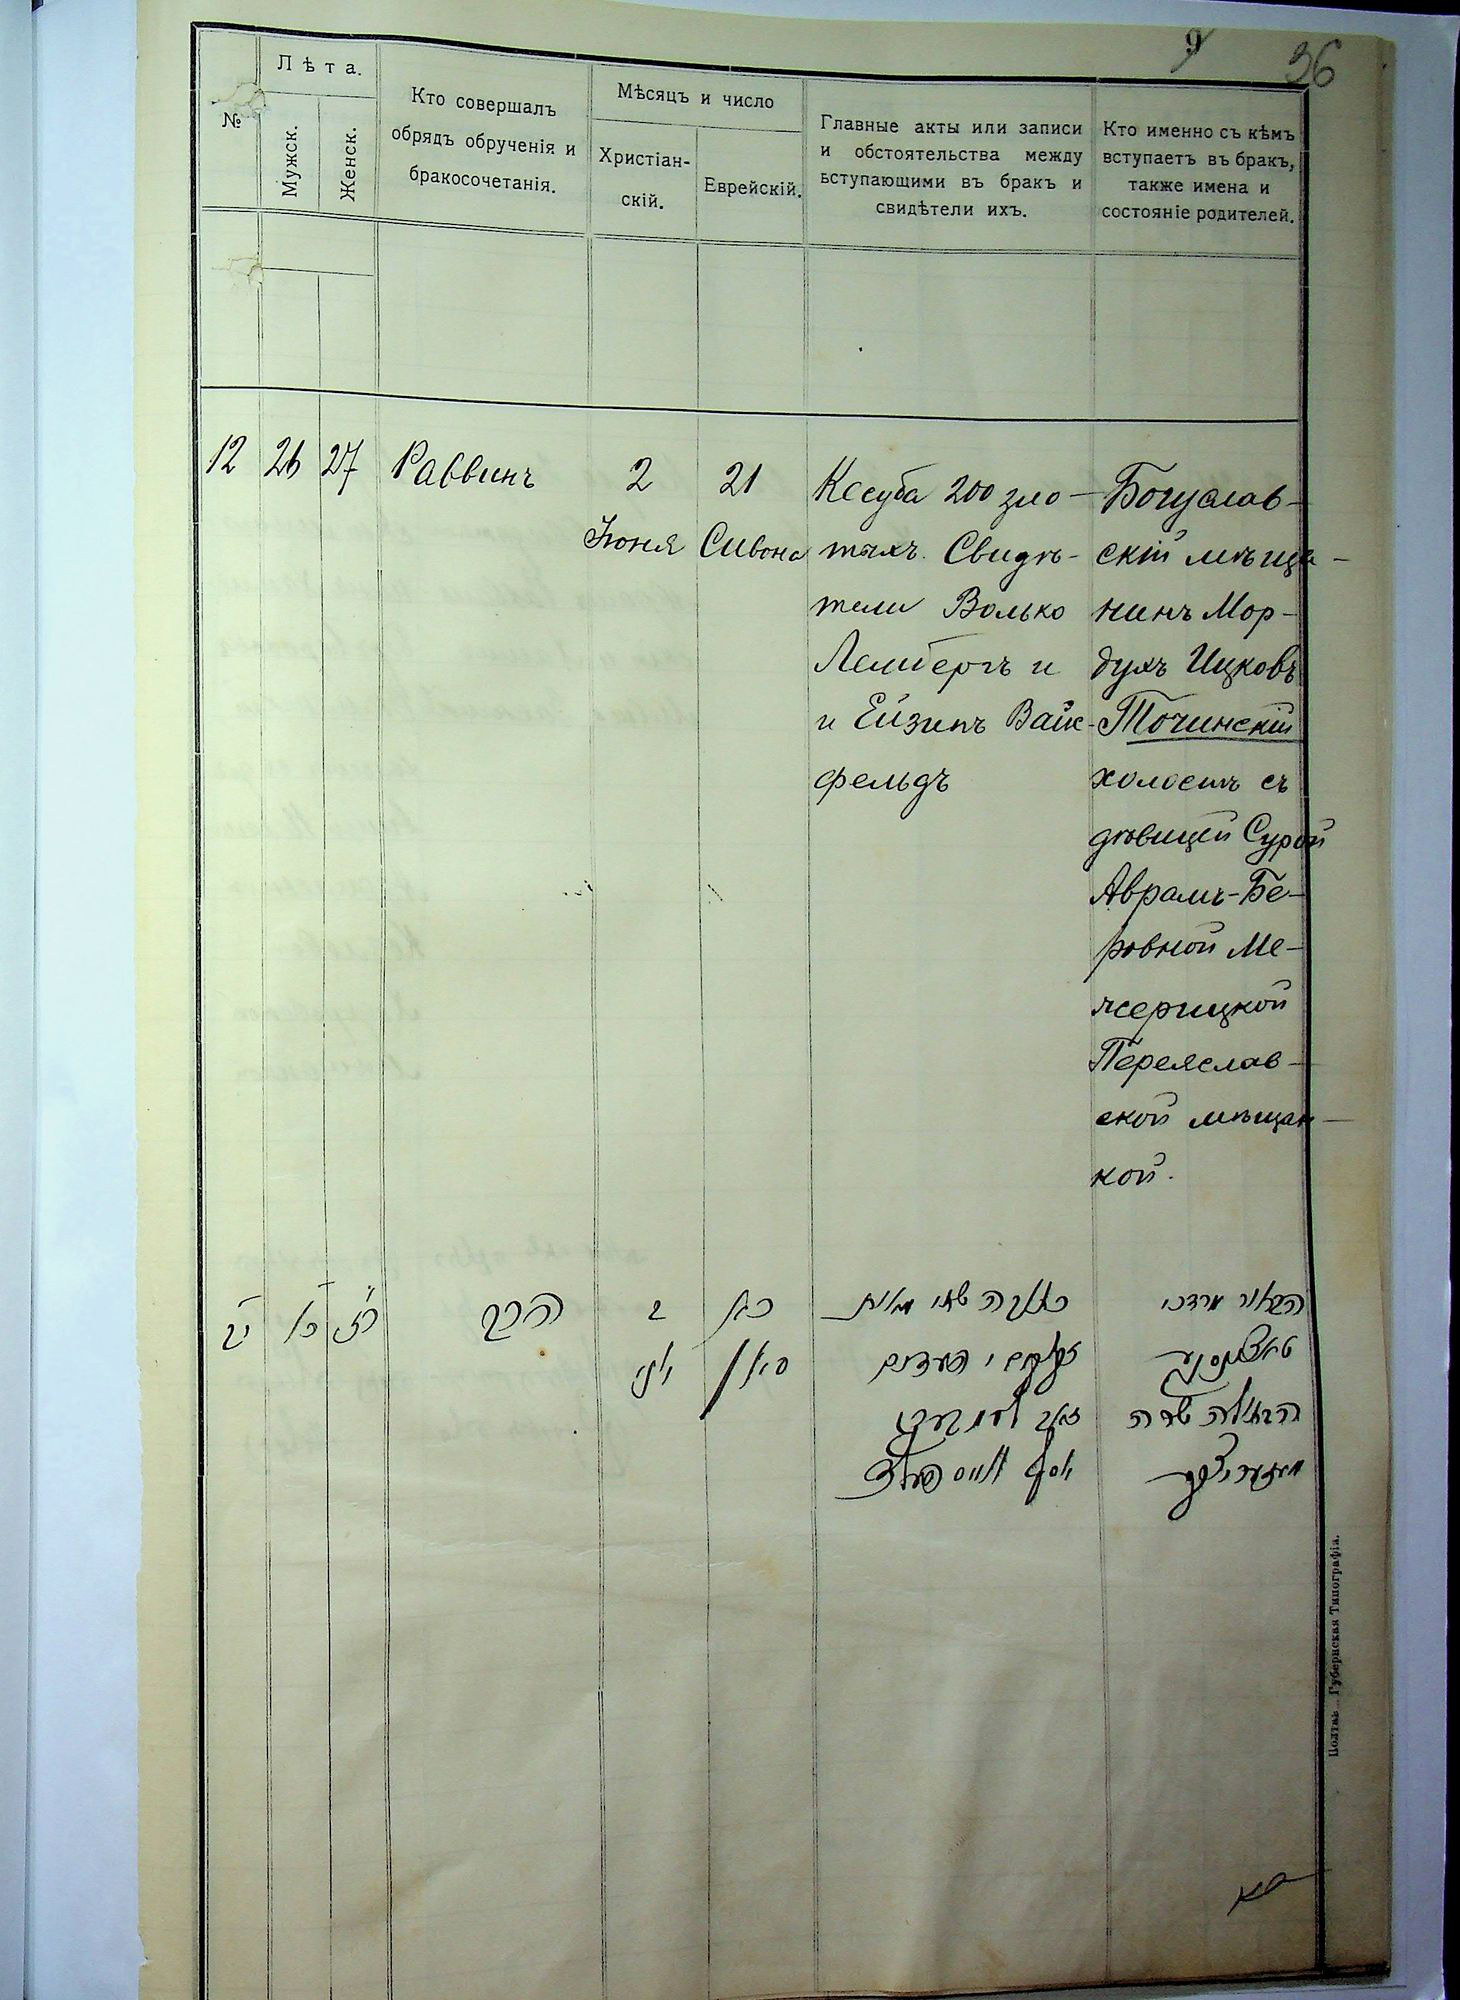 9 36
№
Лѣта.
Мужск.
Женск.
Кто совершалъ
обрядъ обрученія и
бракосочетанія.
Мѣсяцъ и число
Христіан-
скій.
Еврейскій.
Главные акты или записи
и обстоятельства между
вступающими въ бракъ и
свидѣтели ихъ.
Кто именно съ кѣмъ
вступаетъ въ бракъ,
также имена и
состояніе родителей.
12 26 27 Раввинъ
2
Іюня
21
Сивона
Ксуба 200 зло-
тыхъ. Свидѣ-
тели Волько
Лемберъ и
и Ейзипъ Вайс-
фельдъ
Богуслав-
скій мѣща-
нинъ Мор-
духъ Ицковъ
Точинскій
холостъ съ
дѣвицей Сурой
Аврамъ-Бе-
ровной Ме-
жерицкой
Переяслав-
ской мѣщан-
кой.
יב כו כז הרב
ב
יוני
כא
סיון
כתובה שתי מאות
זהובים העדים
זאב
יוסף ווייספעלד
הבחור מרדכי
הבתולה שרה
Полтав. Губернская Типографія.